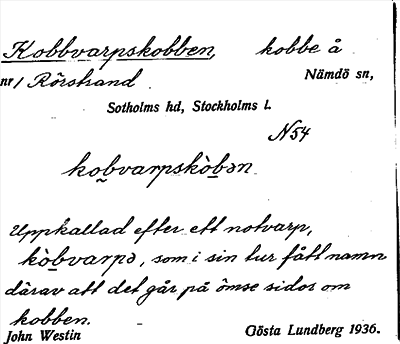 Kobbvarpskobben, kobbe å
nr 1 Rörstrand. Nämdö sn,
Sotholms hd, Stockholms l.
N54
kob̰varpskòb̲ən
Uppkallad efter ett notvarp,
kòb̲varpə, som i sin tur fått namn
därav att det går på ömse sidor om
kobben.
John Westin Gösta Lundberg 1936.